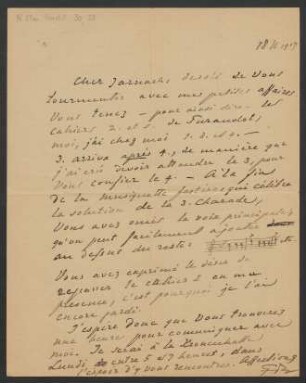 18 II 1917
Cher Jarnach, désolé de vous
tourmenter avec mes petites affaires
Vous tenez – pour ainsi dire – les
cahiers 2. et 5. de Turandot,
moi, j'ai chez moi 1. 3. et 4. –
3. arriva après 4., de manière que
j'ai cru devoir attendre le 3, pour
Vous confier le 4. – À la fin
de la musiquette festive qui célèbre
la solution de la 3. Charade,
Vous avez omis la voix principale,
qu'on peut facilement ajouter
au dessus du reste: etc.
Vous avez exprimé le désir de
recevoir le cahier 2 en ma
présence, c'est pourquoi je l'ai
encore gardé.
J'espère donc que Vous trouverez
une heure pour communiquer avec
moi. Je serai à la
Lundi entre 5 et 7 heures, dans
l'espoir d'y vous rencontrer.